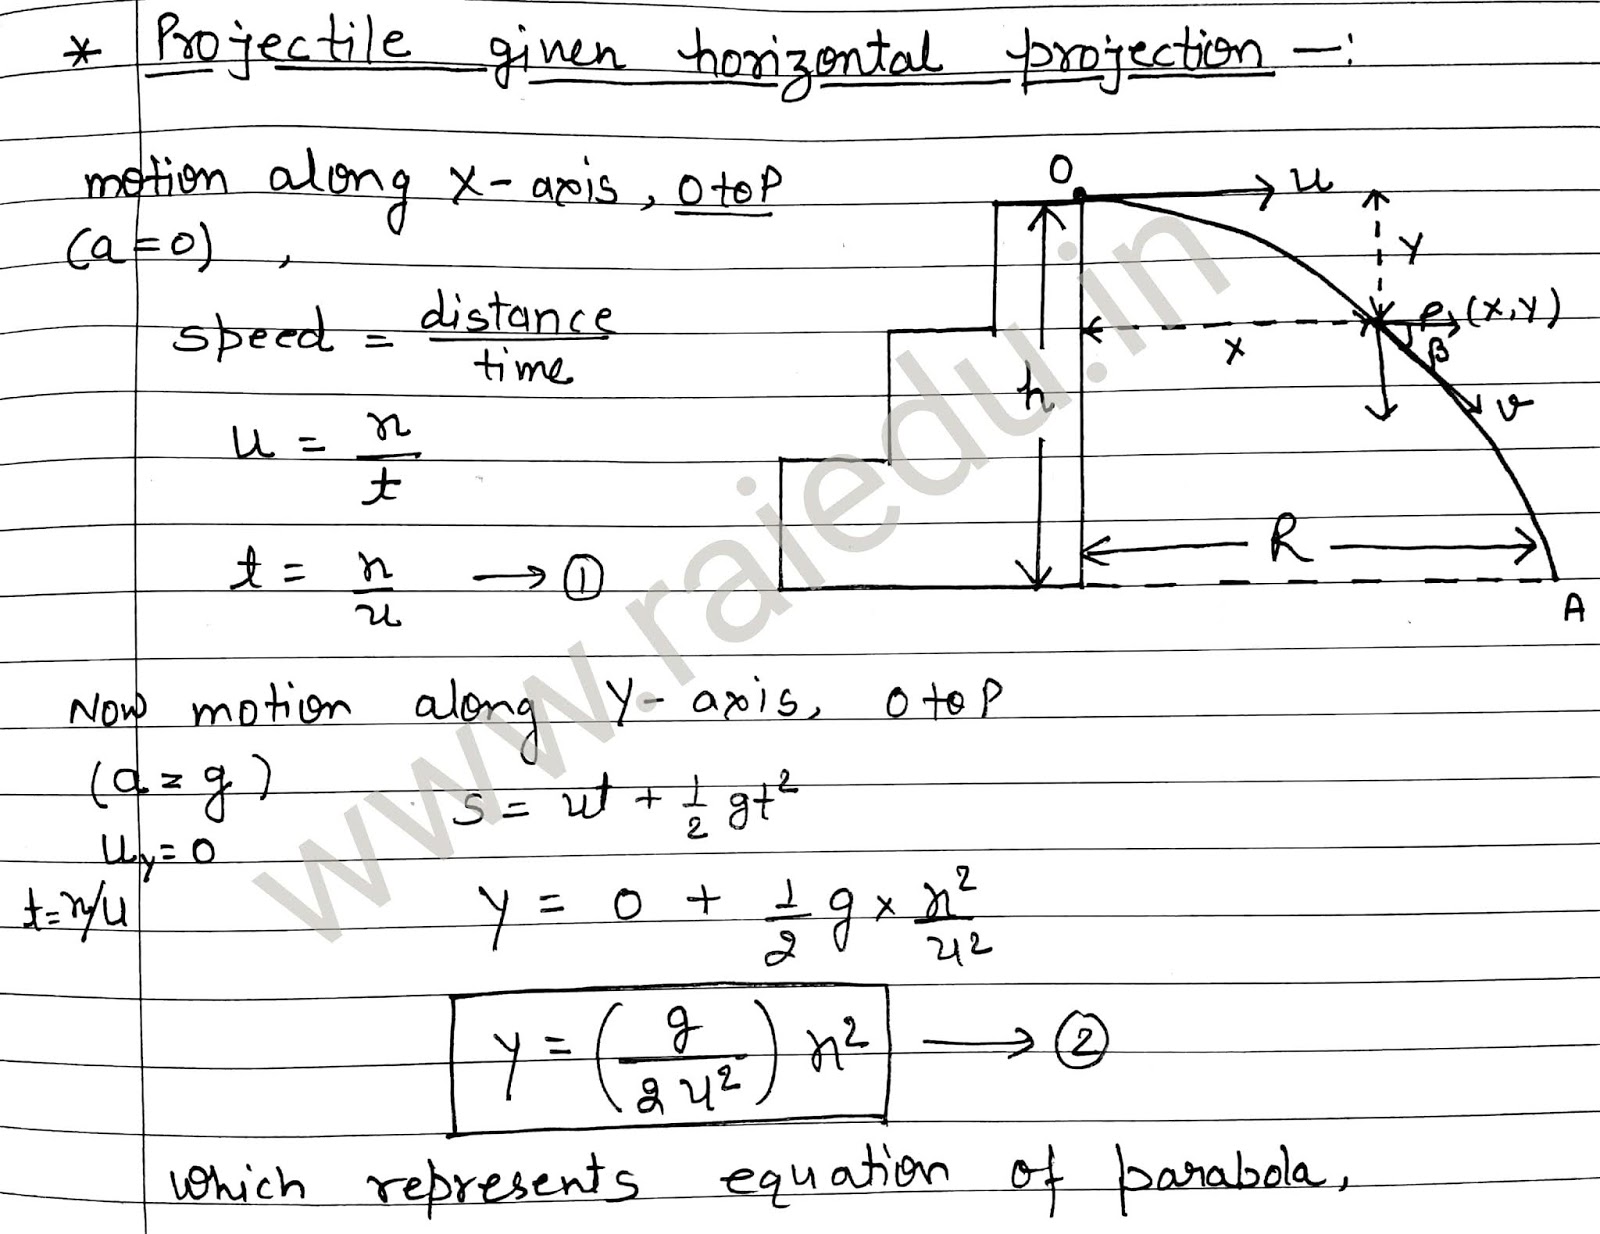 * Projectile given horizontal projection —:
motion along x-axis, O to P
(a=0) ,
speed = distance/time
u = x/t
t = x/u → ①
O
u
Y
P (x,y)
x
β
v
h
R
A
Now motion along Y-axis, O to P
(a = g)
s = ut + 1/2 gt²
u_y = 0
t = x/u
y = 0 + 1/2 g × x²/u²
y = (g/2u²) x² → ②
which represents equation of parabola,
www.raiedu.in